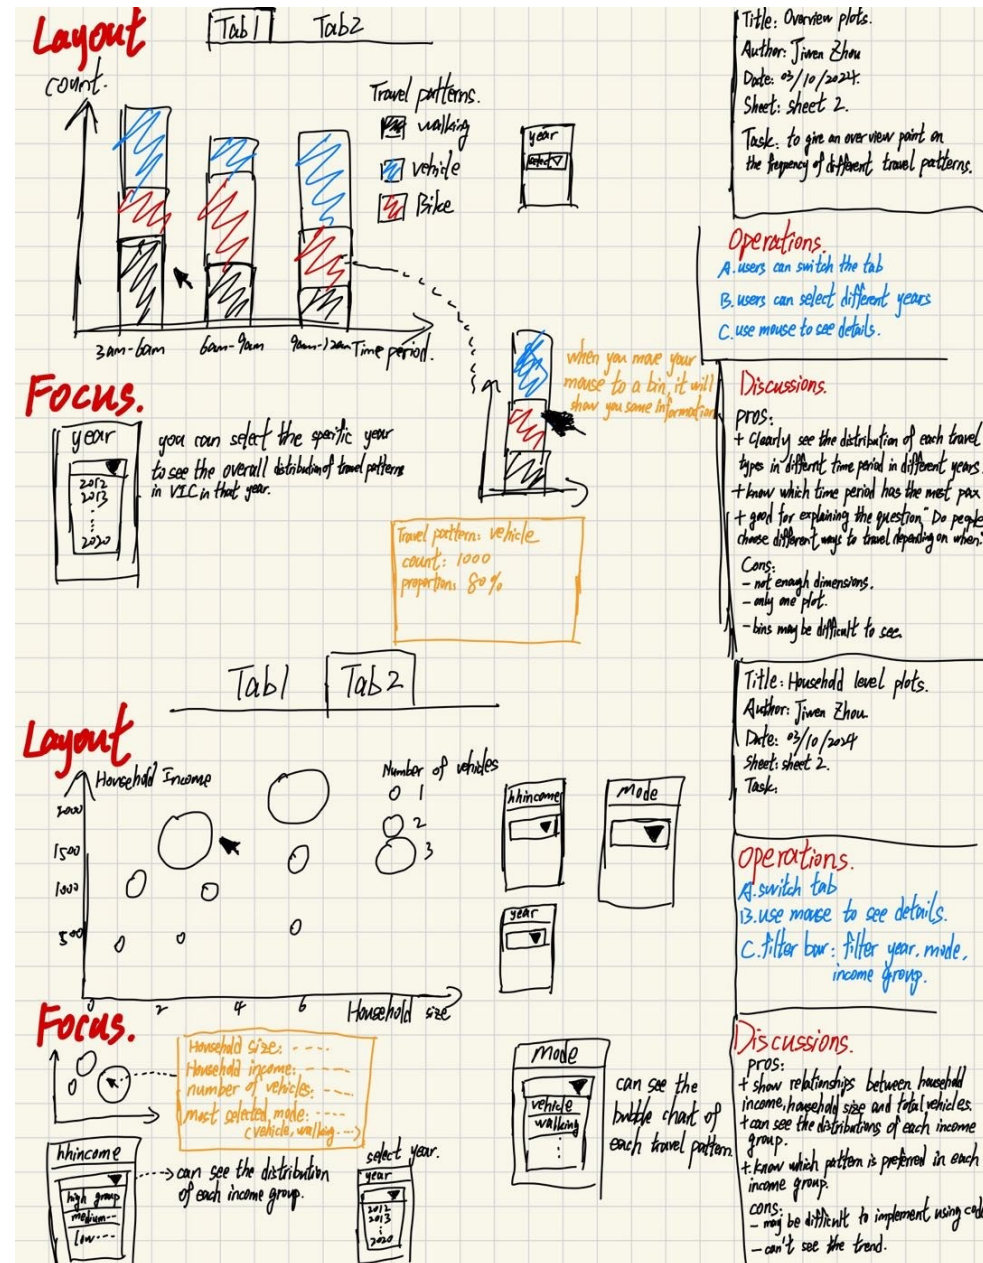 Layout
Tab1 Tab2
count.
Travel patterns.
walking
vehicle
Bike
year
select
3am-6am 6am-9am 9am-12am Time period.
when you move your
mouse to a bin, it will
show you some information
Focus.
year
2012
2013
2020
you can select the specific year
to see the overall distribution of travel patterns
in VIC in that year.
Travel pattern: vehicle
count: 1000
proportion: 80%
Title: Overview plots.
Author: Jiwen Zhou
Date: 03/10/2024.
Sheet: sheet 2.
Task: to give an overview point on
the frequency of different travel patterns.
Operations.
A. users can switch the tab
B. users can select different years
C. use mouse to see details.
Discussions.
pros:
+ Clearly see the distribution of each travel
types in differnt time period in different years.
+ know which time period has the most pax
+ good for explaining the question "Do people
choose different ways to travel depending on when"
Cons:
- not enough dimensions.
- only one plot.
- bins may be difficult to see.
Tab1 Tab2
Layout
Household Income
2000
1500
1000
500
0 2 4 6 Household size
Number of vehicles
1
2
3
hhincome
Mode
year
Focus.
Household size: ----
Household income: ----
number of vehicles: ----
most selected mode: ----
(vehicle, walking ---)
hhincome
high group
medium--
low---
can see the distribution
of each income group.
select year.
year
2012
2013
2020
Mode
vehicle
walking
can see the
bubble chart of
each travel pattern
Title: Household level plots.
Author: Jiwen Zhou
Date: 03/10/2024
Sheet: sheet 2.
Task:
Operations.
A. switch tab
B. use mouse to see details.
C. filter bar: filter year, mode,
income group.
Discussions.
pros:
+ show relationships between household
income, household size and total vehicles.
+ can see the distributions of each income
group.
+ know which pattern is preferred in each
income group.
cons:
- may be difficult to implement using code
- can't see the trend.